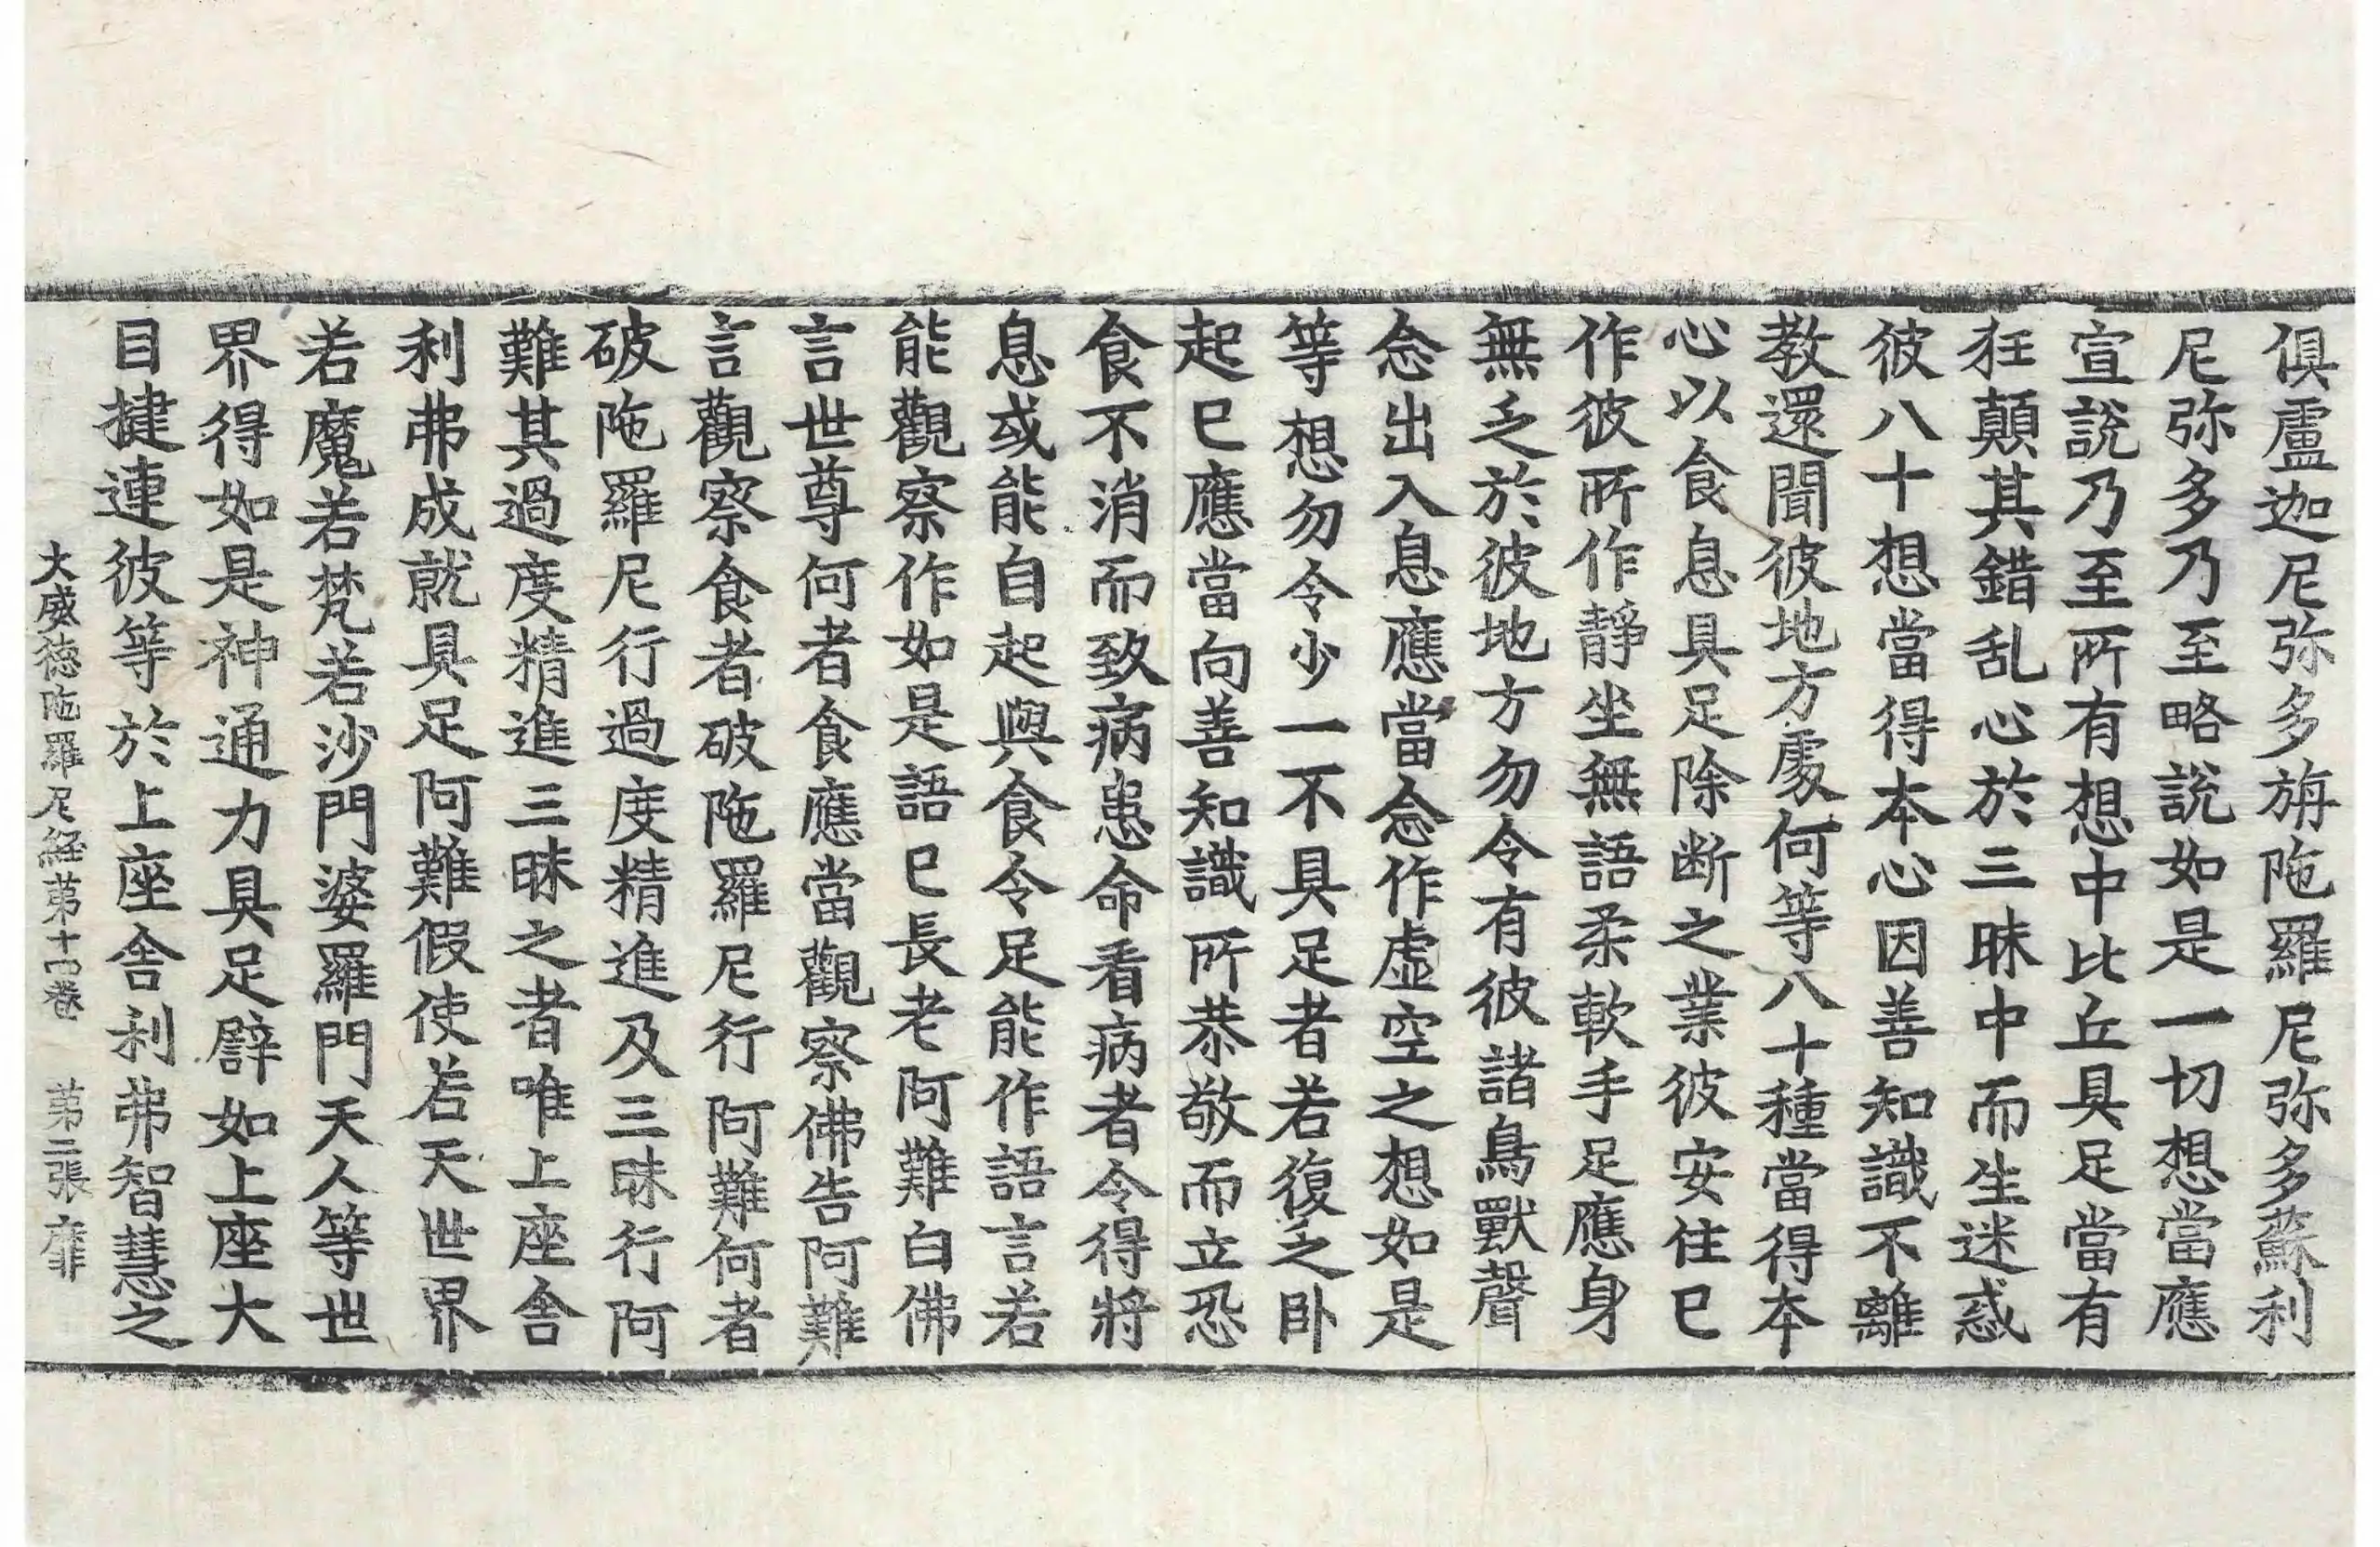 俱盧迦尼弥多旃陁羅尼弥多蘇利
尼弥多乃至略說如是一切想當應
宣說乃至所有想中比丘具足當有
狂顛其錯乱心於三昧中而生迷惑
彼八十想當得本心因善知識不離
教還聞彼地方處何等八十種當得本
心以食息具足除断之業彼安住已
作彼所作靜坐無語柔軟手足應身
無乏於彼地方勿令有彼諸鳥獸聲
念出入息應當念作虛空之想如是
等想勿令少一不具足者若復乏卧
起已應當向善知識所恭敬而立恐
食不消而致病患命看病者令得將
息或能自起與食令足能作語言若
能觀察作如是語已長老阿難白佛
言世尊何者食應當觀察佛告阿難
言觀察食者破陁羅尼行阿難何者
破陁羅尼行過度精進及三昧行阿
難其過度精進三昧之者唯上座舍
利弗成就具足阿難假使若天世界
若魔若梵若沙門婆羅門天人等世
界得如是神通力具足譬如上座大
目揵連彼等於上座舍利弗智慧之
大威德陁羅尼経苐十四卷 苐二張 靡